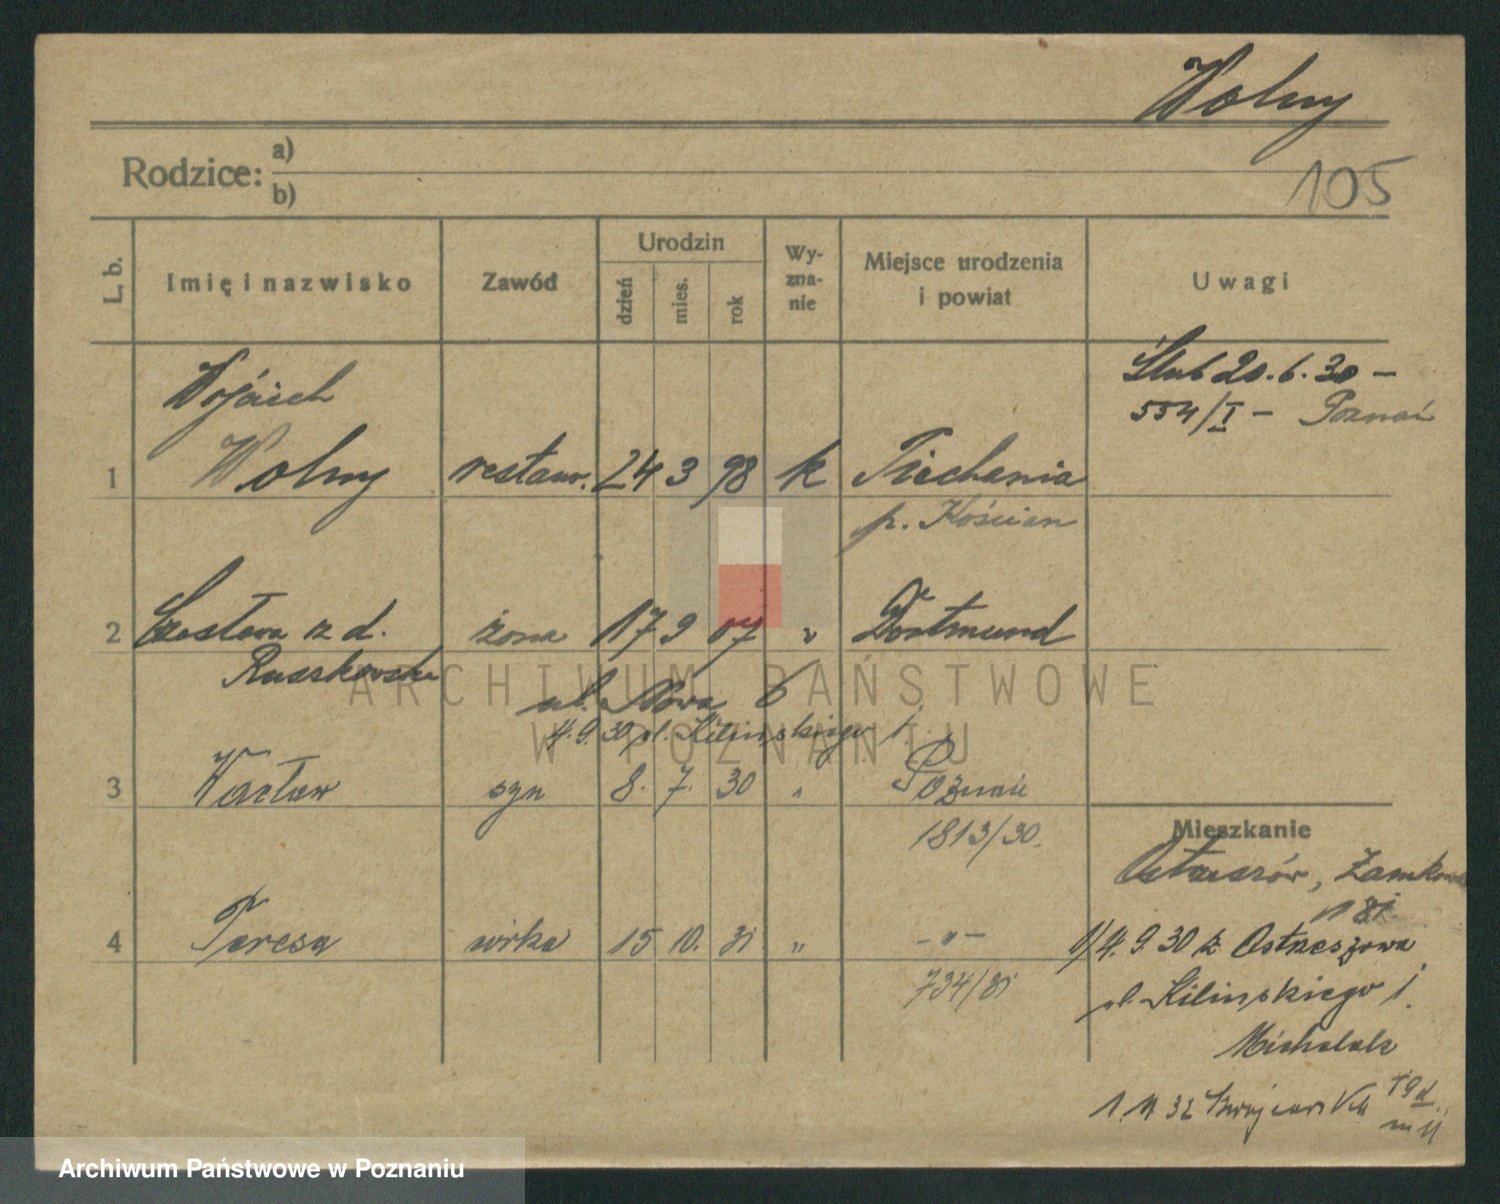 Wolny
Rodzice: a)
b)
105
L. b. Imię i nazwisko Zawód Urodzin dzień mies. rok Wy-zna-nie Miejsce urodzenia i powiat Uwagi
Ślub 20.6.30 –
554/I – Poznań
Wojciech
1 Wolny restaur. 24 3 98 k Piechania
p. Kościan
2 Czesława z d. żona 17 9 07 " Dortmund
Ruszkowska
ul. Nowa 6
4.9.30 pl. Kilińskiego 1.
3 Wacław syn 8. 7. 30 " Poznań
1813/30.
Mieszkanie
Ostrzeszów, Zamkowa
4 Teresa córka 15 10. 31 " – " –
734/31
1/4.9.30 z Ostrzeszowa
pl. Kilińskiego 1.
Michalak
ARCHIWUM PAŃSTWOWE
W POZNANIU
Archiwum Państwowe w Poznaniu